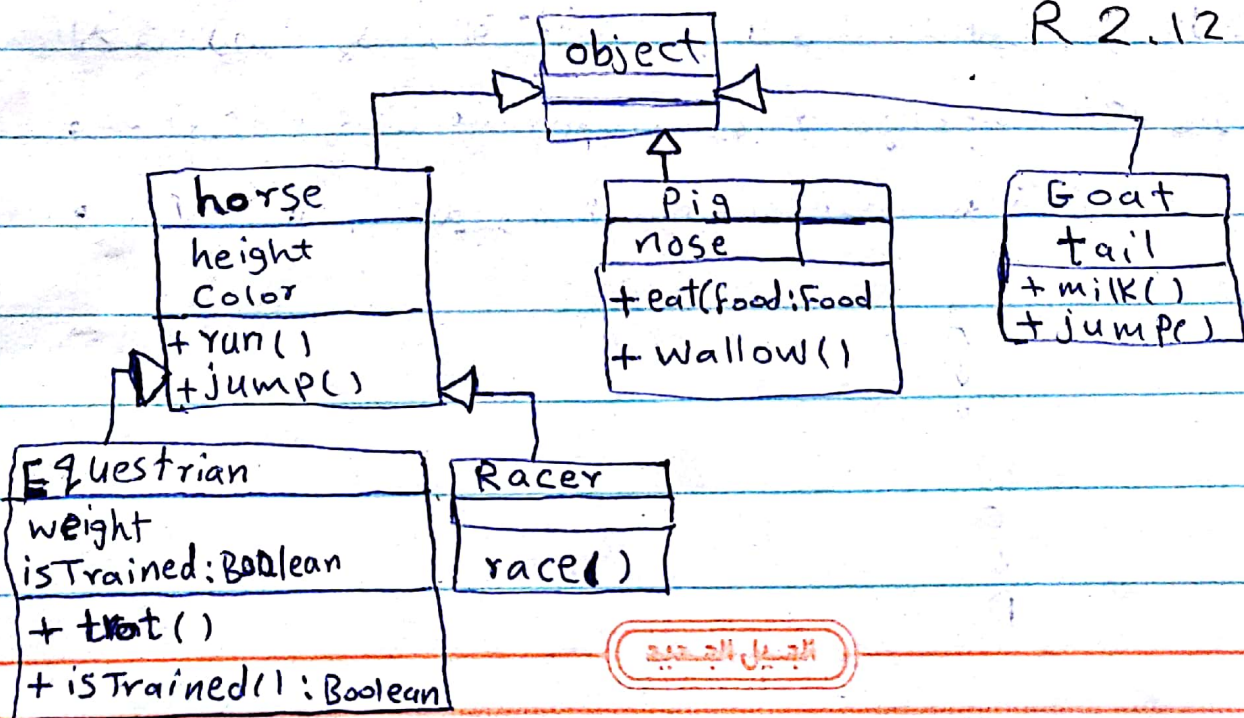 R 2.12
object
horse
height
Color
+ run()
+ jump()
Pig
nose
+ eat(food:Food
+ Wallow()
Goat
tail
+ milk()
+ jump()
Equestrian
weight
isTrained: Boolean
+ trot()
+ isTrained() : Boolean
Racer
race()